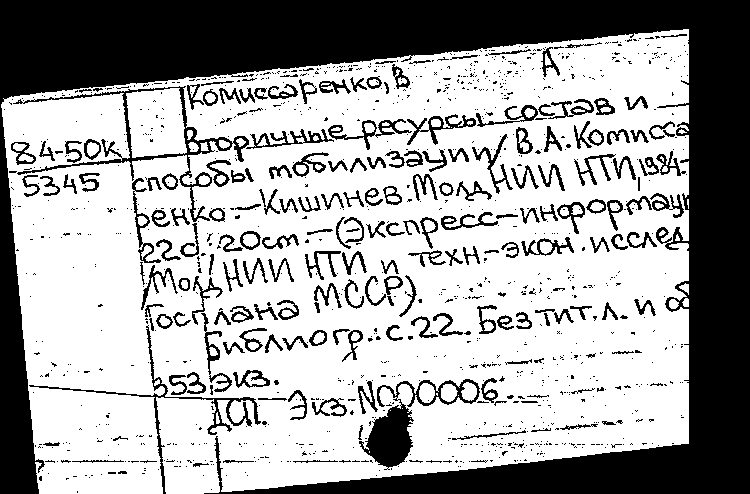 Комиссаренко, В А
84-50к Вторичные ресурсы: состав и
5345 способы мобилизации / В.А.Комисса
ренко.-Кишинев:МолдНИИ НТИ,1984.-
22с.:20см.-(Экспресс-информаци
/МолдНИИ НТИ и техн.-экон.исслед
Госплана МССР).
Библиогр.:с.22. Без тит.л. и об
353экз.
ДСП. Экз.N000006.